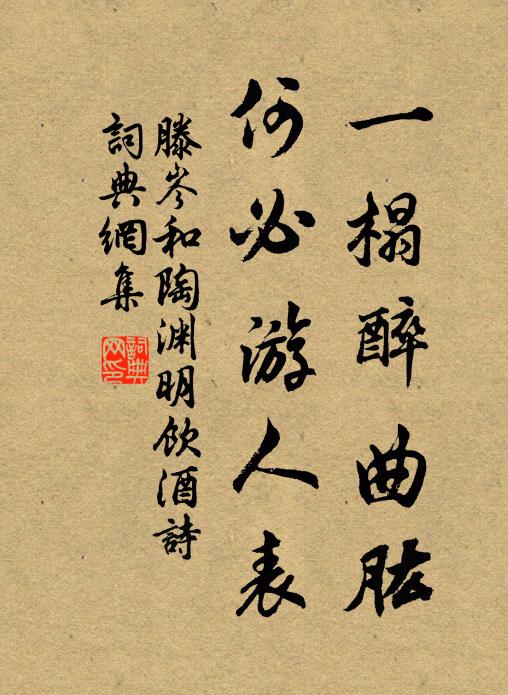 一榻醉曲肱
何必游人表
滕岑和陶渊明饮酒詩
詞典網集
詞典
网印